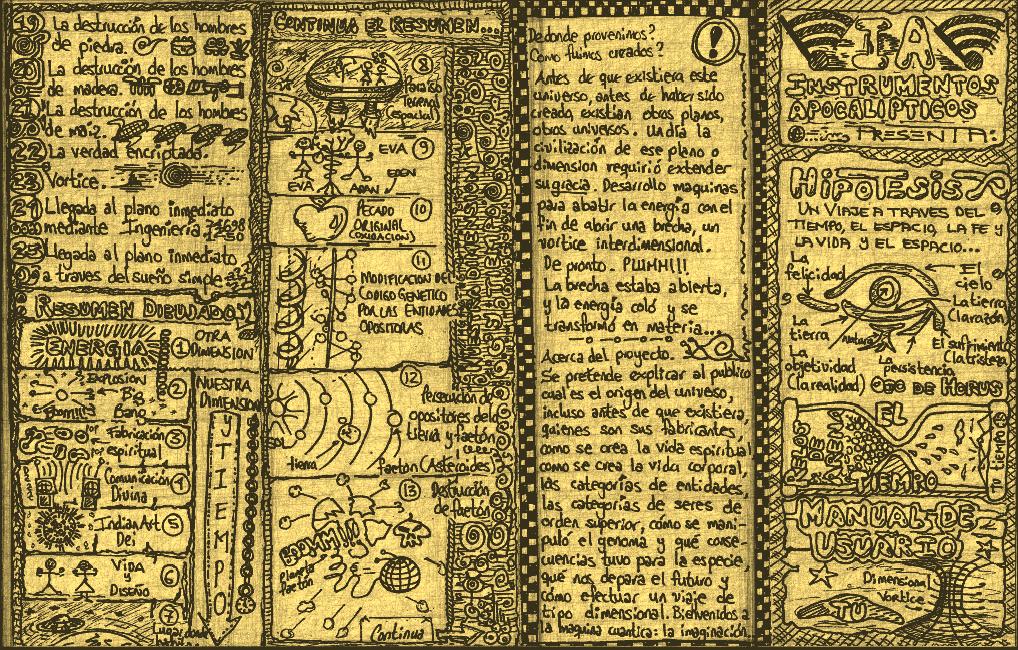 19 La destrucción de los hombres
de piedra.
20 La destrucción de los hombres
de madera.
21 La destrucción de los hombres
de maiz.
22 La verdad encriptada.
23 Vortice.
24 Llegada al plano inmediato
mediante Ingenieria.
25 Llegada al plano inmediato
a traves del sueño simple
RESUMEN DIBUJADO
ENERGIA
1 OTRA
DIMENSION
EXPLOSION
2
Big
Bang
NUESTRA
DIMENSION
Y
TIEMPO
Fabricación 3
espiritual
Comunicación 4
Divina
Indian Art 5
Dei
VIDA 6
Y
DISEÑO
7
CONTINUA EL RESUMEN...
8
Paraiso
Terrenal
(espacial)
EVA 9
EVA ADAN EDEN
PECADO 10
ORIGINAL
11
MODIFICACION DEL
CODIGO GENETICO
POR LAS ENTIDADES
OPOSITORAS
12
Persecución de
opositores de la
tierra y faetón
SOL
tierra faetón (Asteroides)
13 Destrucción
de faetón
BOOMM!!!
planeta
faetón
Continua
De donde provenimos?
Como fuimos creados?
!
Antes de que existiera este
universo, antes de haber sido
creado, existian otros planos,
otros universos. Un dia la
civilización de ese plano o
dimension requirió extender
su gracia. Desarrollo maquinas
para abatir la energía con el
fin de abrir una brecha, un
vortice interdimensional.
De pronto. PLUMM!!!
La brecha estaba abierta,
y la energía coló y se
transformó en materia...
Acerca del proyecto.
Se pretende explicar al publico
cual es el origen del universo,
incluso antes de que existiera,
quienes son sus fabricantes,
como se crea la vida espiritual
como se crea la vida corporal,
las categorías de entidades,
las categorías de seres de
orden superior, cómo se mani-
puló el genoma y qué conse-
cuencias tuvo para la especie,
qué nos depara el futuro y
cómo efectuar un viaje de
tipo dimensional. Bienvenidos a
la maquina cuantica: la imaginación.
IA
INSTRUMENTOS
APOCALIPTICOS
PRESENTA:
HIPOTESIS
UN VIAJE A TRAVES DEL
TIEMPO, EL ESPACIO, LA FE Y
LA VIDA Y EL ESPACIO...
La
felicidad
El
cielo
La tierra
(la razón)
La
tierra
natura
El sufrimiento
(la tristeza)
La
objetividad
(la realidad)
La
persistencia
OJO DE HORUS
EL
TIEMPO
RELOJ DE
ARENA
TU tiempo es
MANUAL DE
USUARIO
Dimensional
Vortice
TU